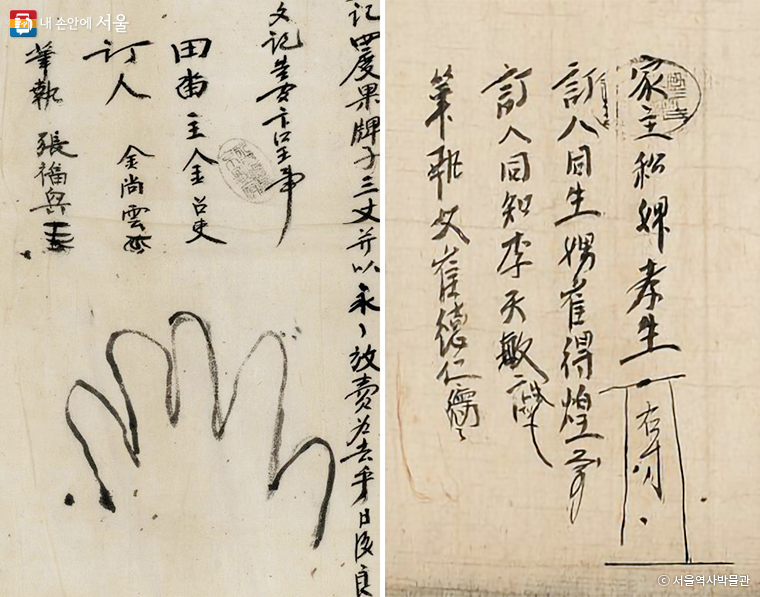 내 손안에 서울
記四度果牌子三丈并以永〻放賣為去乎日後良
文記告官事
田畓主金召史
訂人 金尚雲
筆執 張福興
家主私婢孝生
右寸
訂人同生娚崔得煌
訂人同知李天敏
筆執父崔德仁
ⓒ 서울역사박물관